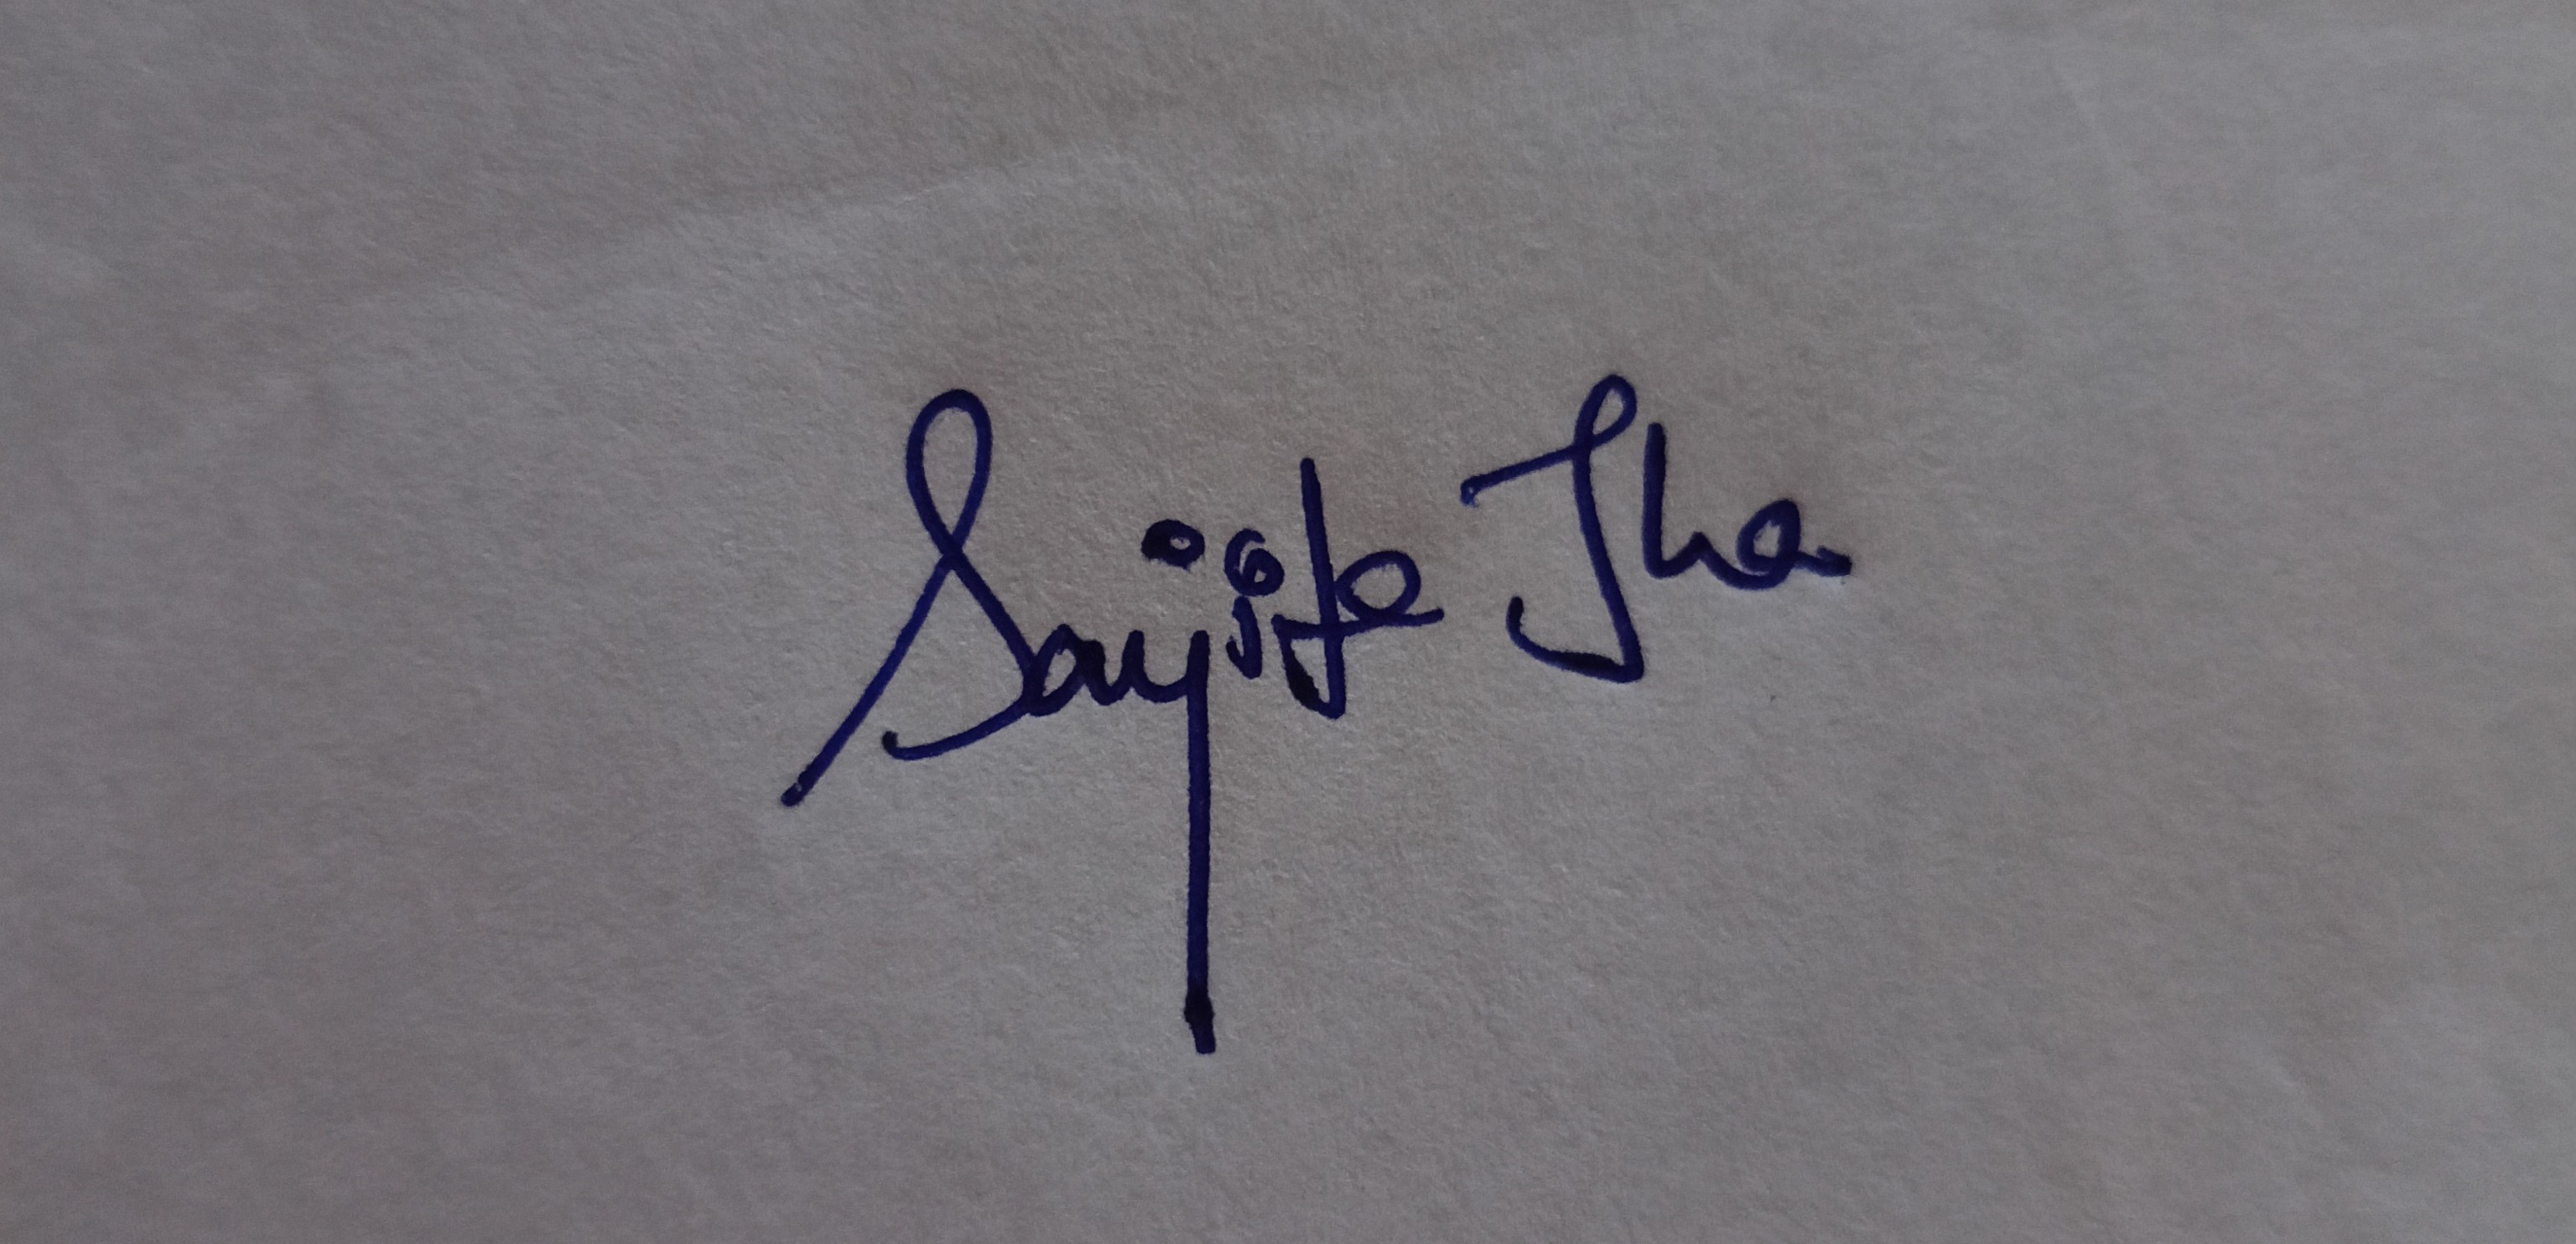 Sanjita Jha